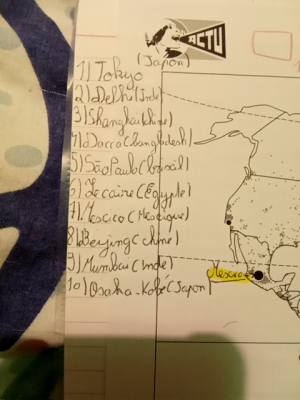 ACTU
(Japon)
1) Tokyo
2) Delhi (Inde)
3) Shanghai (Chine)
4) Dacca (bangladesh)
5) São Paulo (brésil)
6) Le caire (Egypte)
7) Mescico (Mescique)
8) Beijing (chine)
9) Mumbai (inde)
Mescico
10) Osaka-Kobé (Japon)